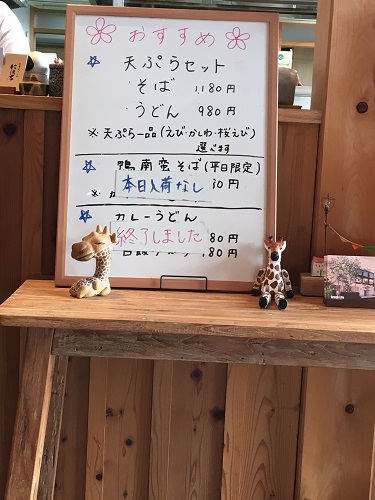 おすすめ
天ぷらセット
そば 1,180円
うどん 980円
※天ぷら一品(えび・かしわ・桜えび)
選べます
鴨南蛮そば(平日限定)
本日入荷なし 30円
※
カレーうどん
終了しました 80円
180円